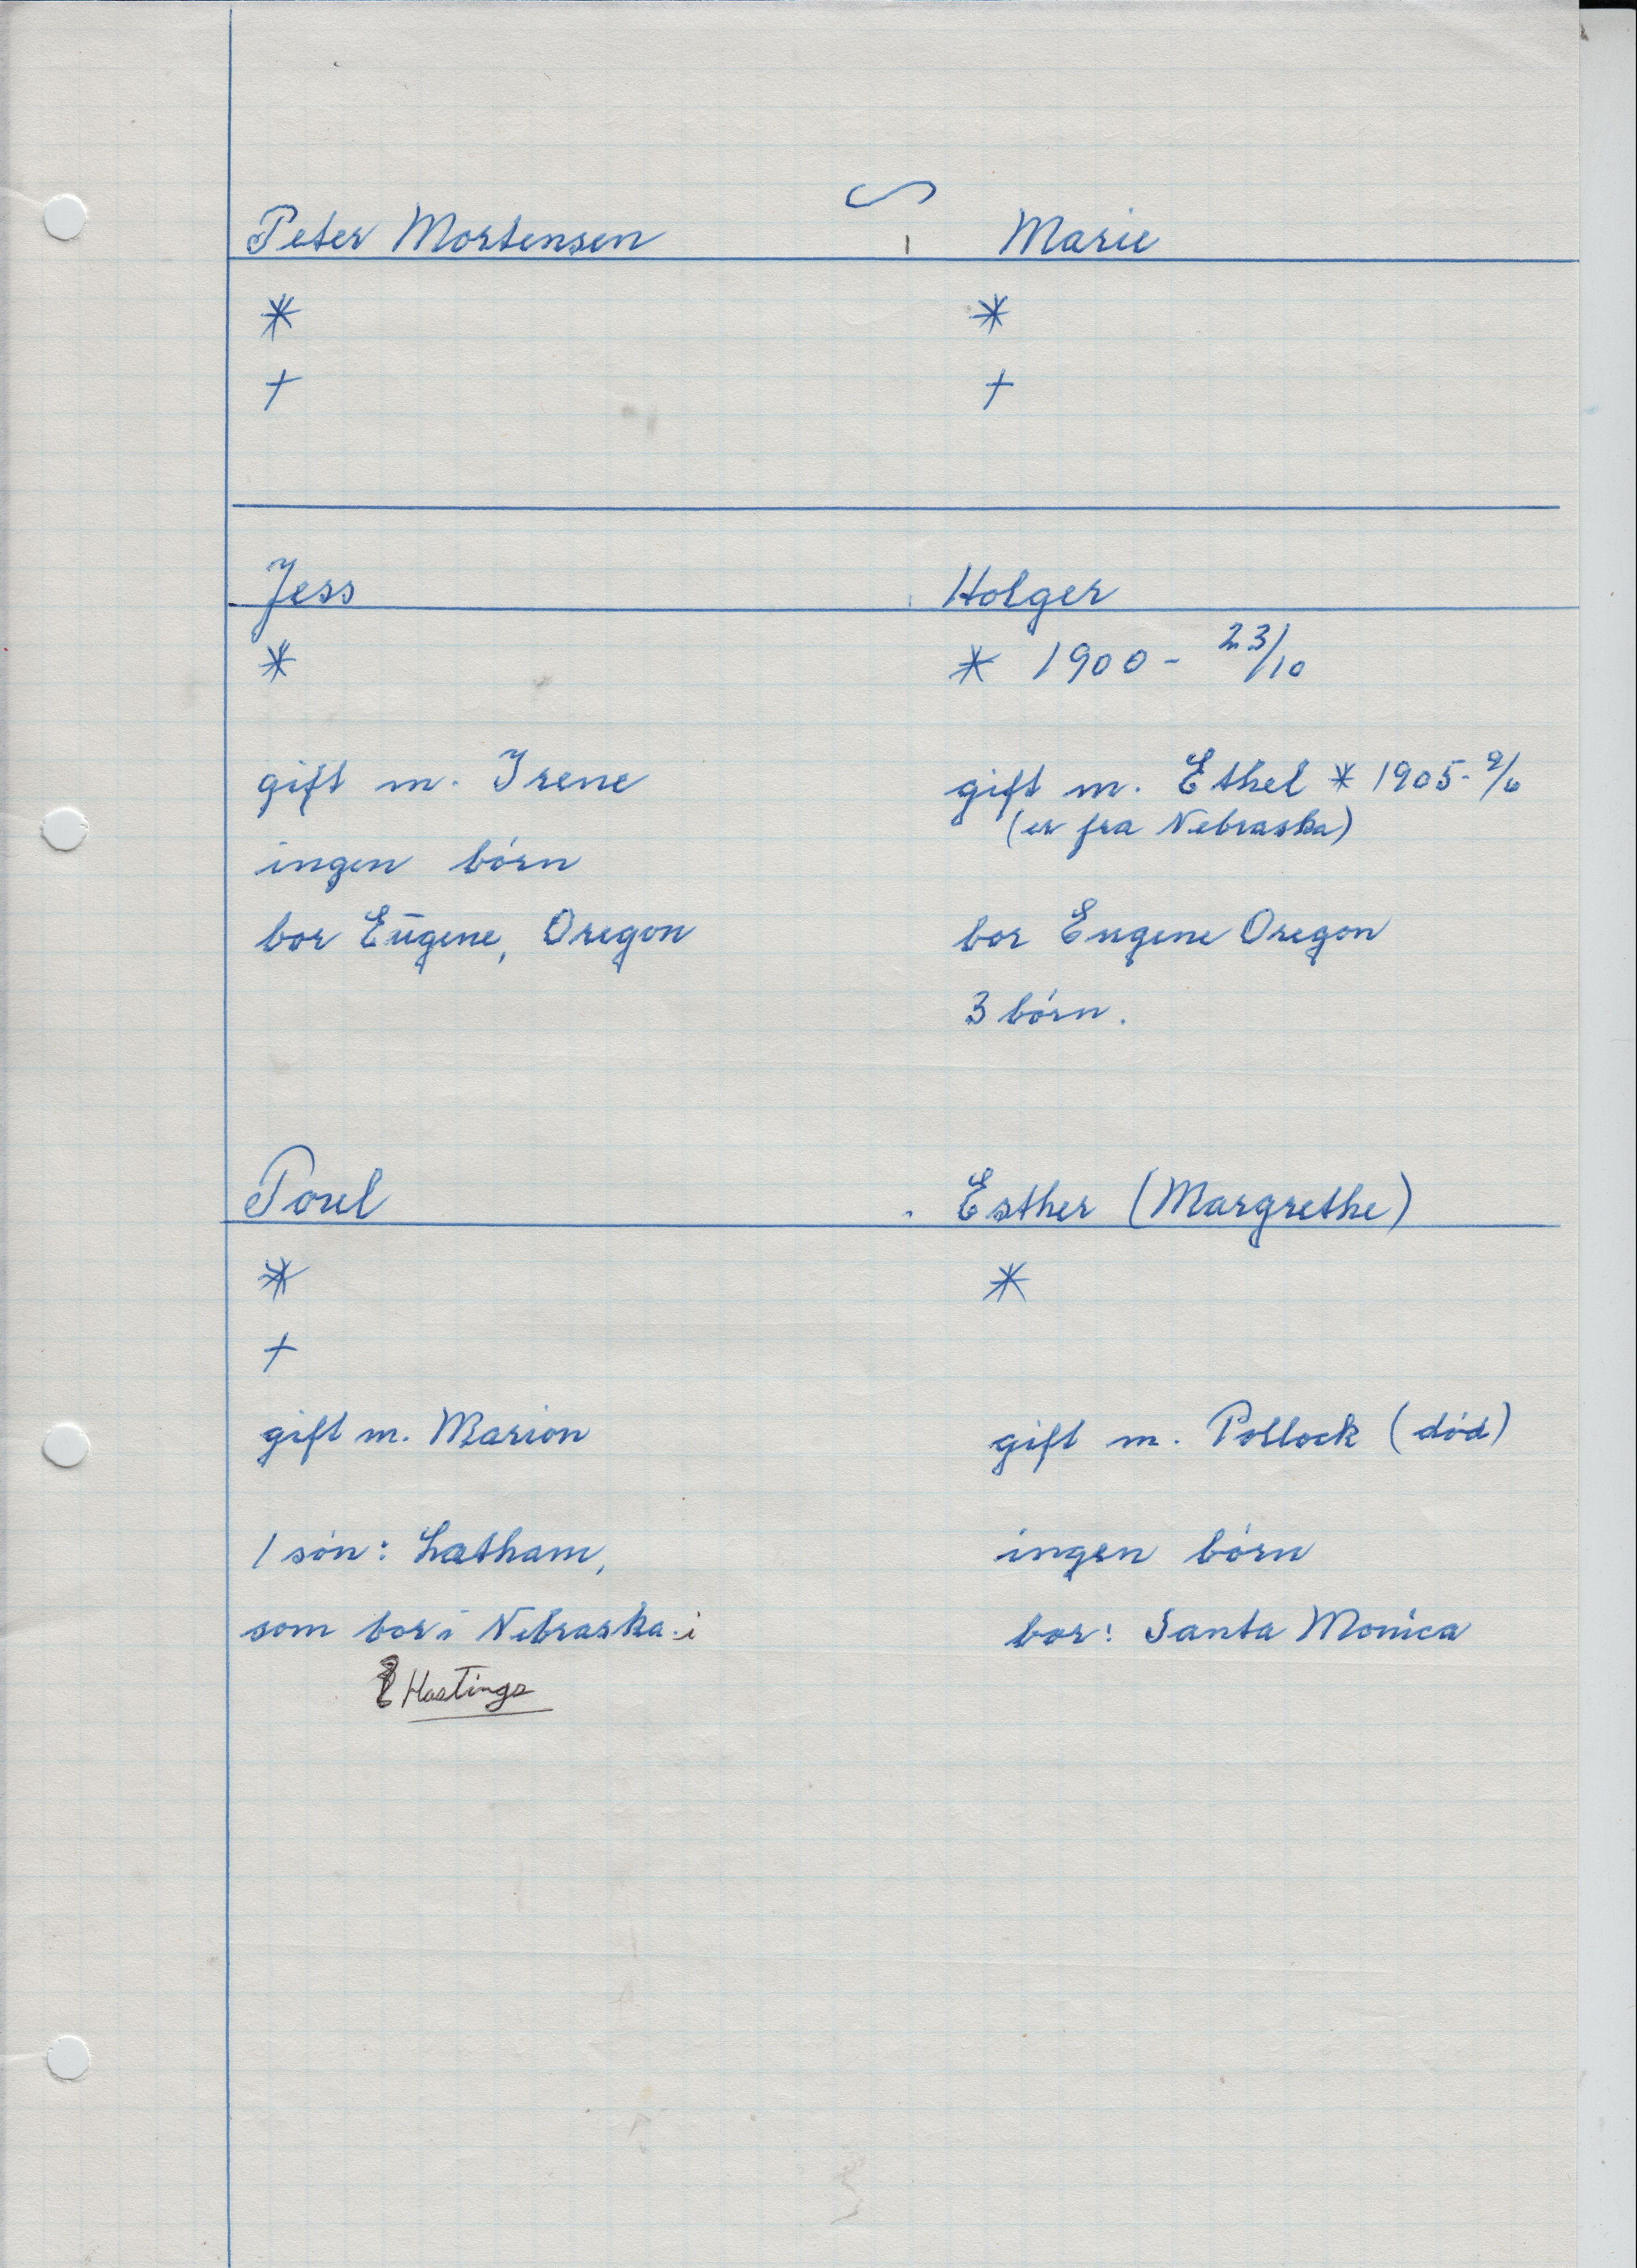 Peter Mortensen ∽ Marie
* *
† †
Jess
*
gift m. Irene
ingen börn
bor Eugene, Oregon
Holger
* 1900 - 23/10
gift m. Ethel * 1905 - 9/6
(er fra Nebraska)
bor Eugene Oregon
3 börn.
Poul
*
†
gift m. Marion
1 sön: Latham,
som bor i Nebraska i
Hastings
Esther (Margrethe)
*
gift m. Pollock (död)
ingen börn
bor: Santa Monica